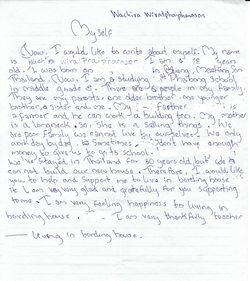 Wachira
Myself
Now, I would like to write about myself. My name
is I am 18 years
old. I was born on in Maesong
Thailand. Now, I am studying Phobsong school
in middle grade. There are 6 people in my family.
They are my parents, one older brother, one younger
brother, a sister and me. My father is
a farmer and he can work a building too. My mother
is a longneck. So, she is a selling thing. We
are poor family. We cannot live by ourselves. We only
work day by day. Sometimes, don't have enough
money to give us to go to school.
We've stayed in Thailand for 30 years old, but we
can not build our new house. Therefore, I would like
you to help and support me to live in boarding house.
If I am very very glad and gratefully for you supporting
to me. I am very feeling happiness to living in
bording house. I am very thankfully teacher
living in bording house.